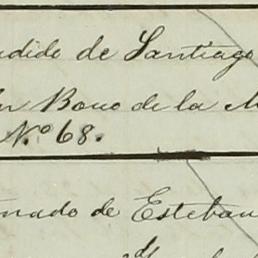 dido de Santiago
Bono de la M
N.º 68.
nado de Esteban